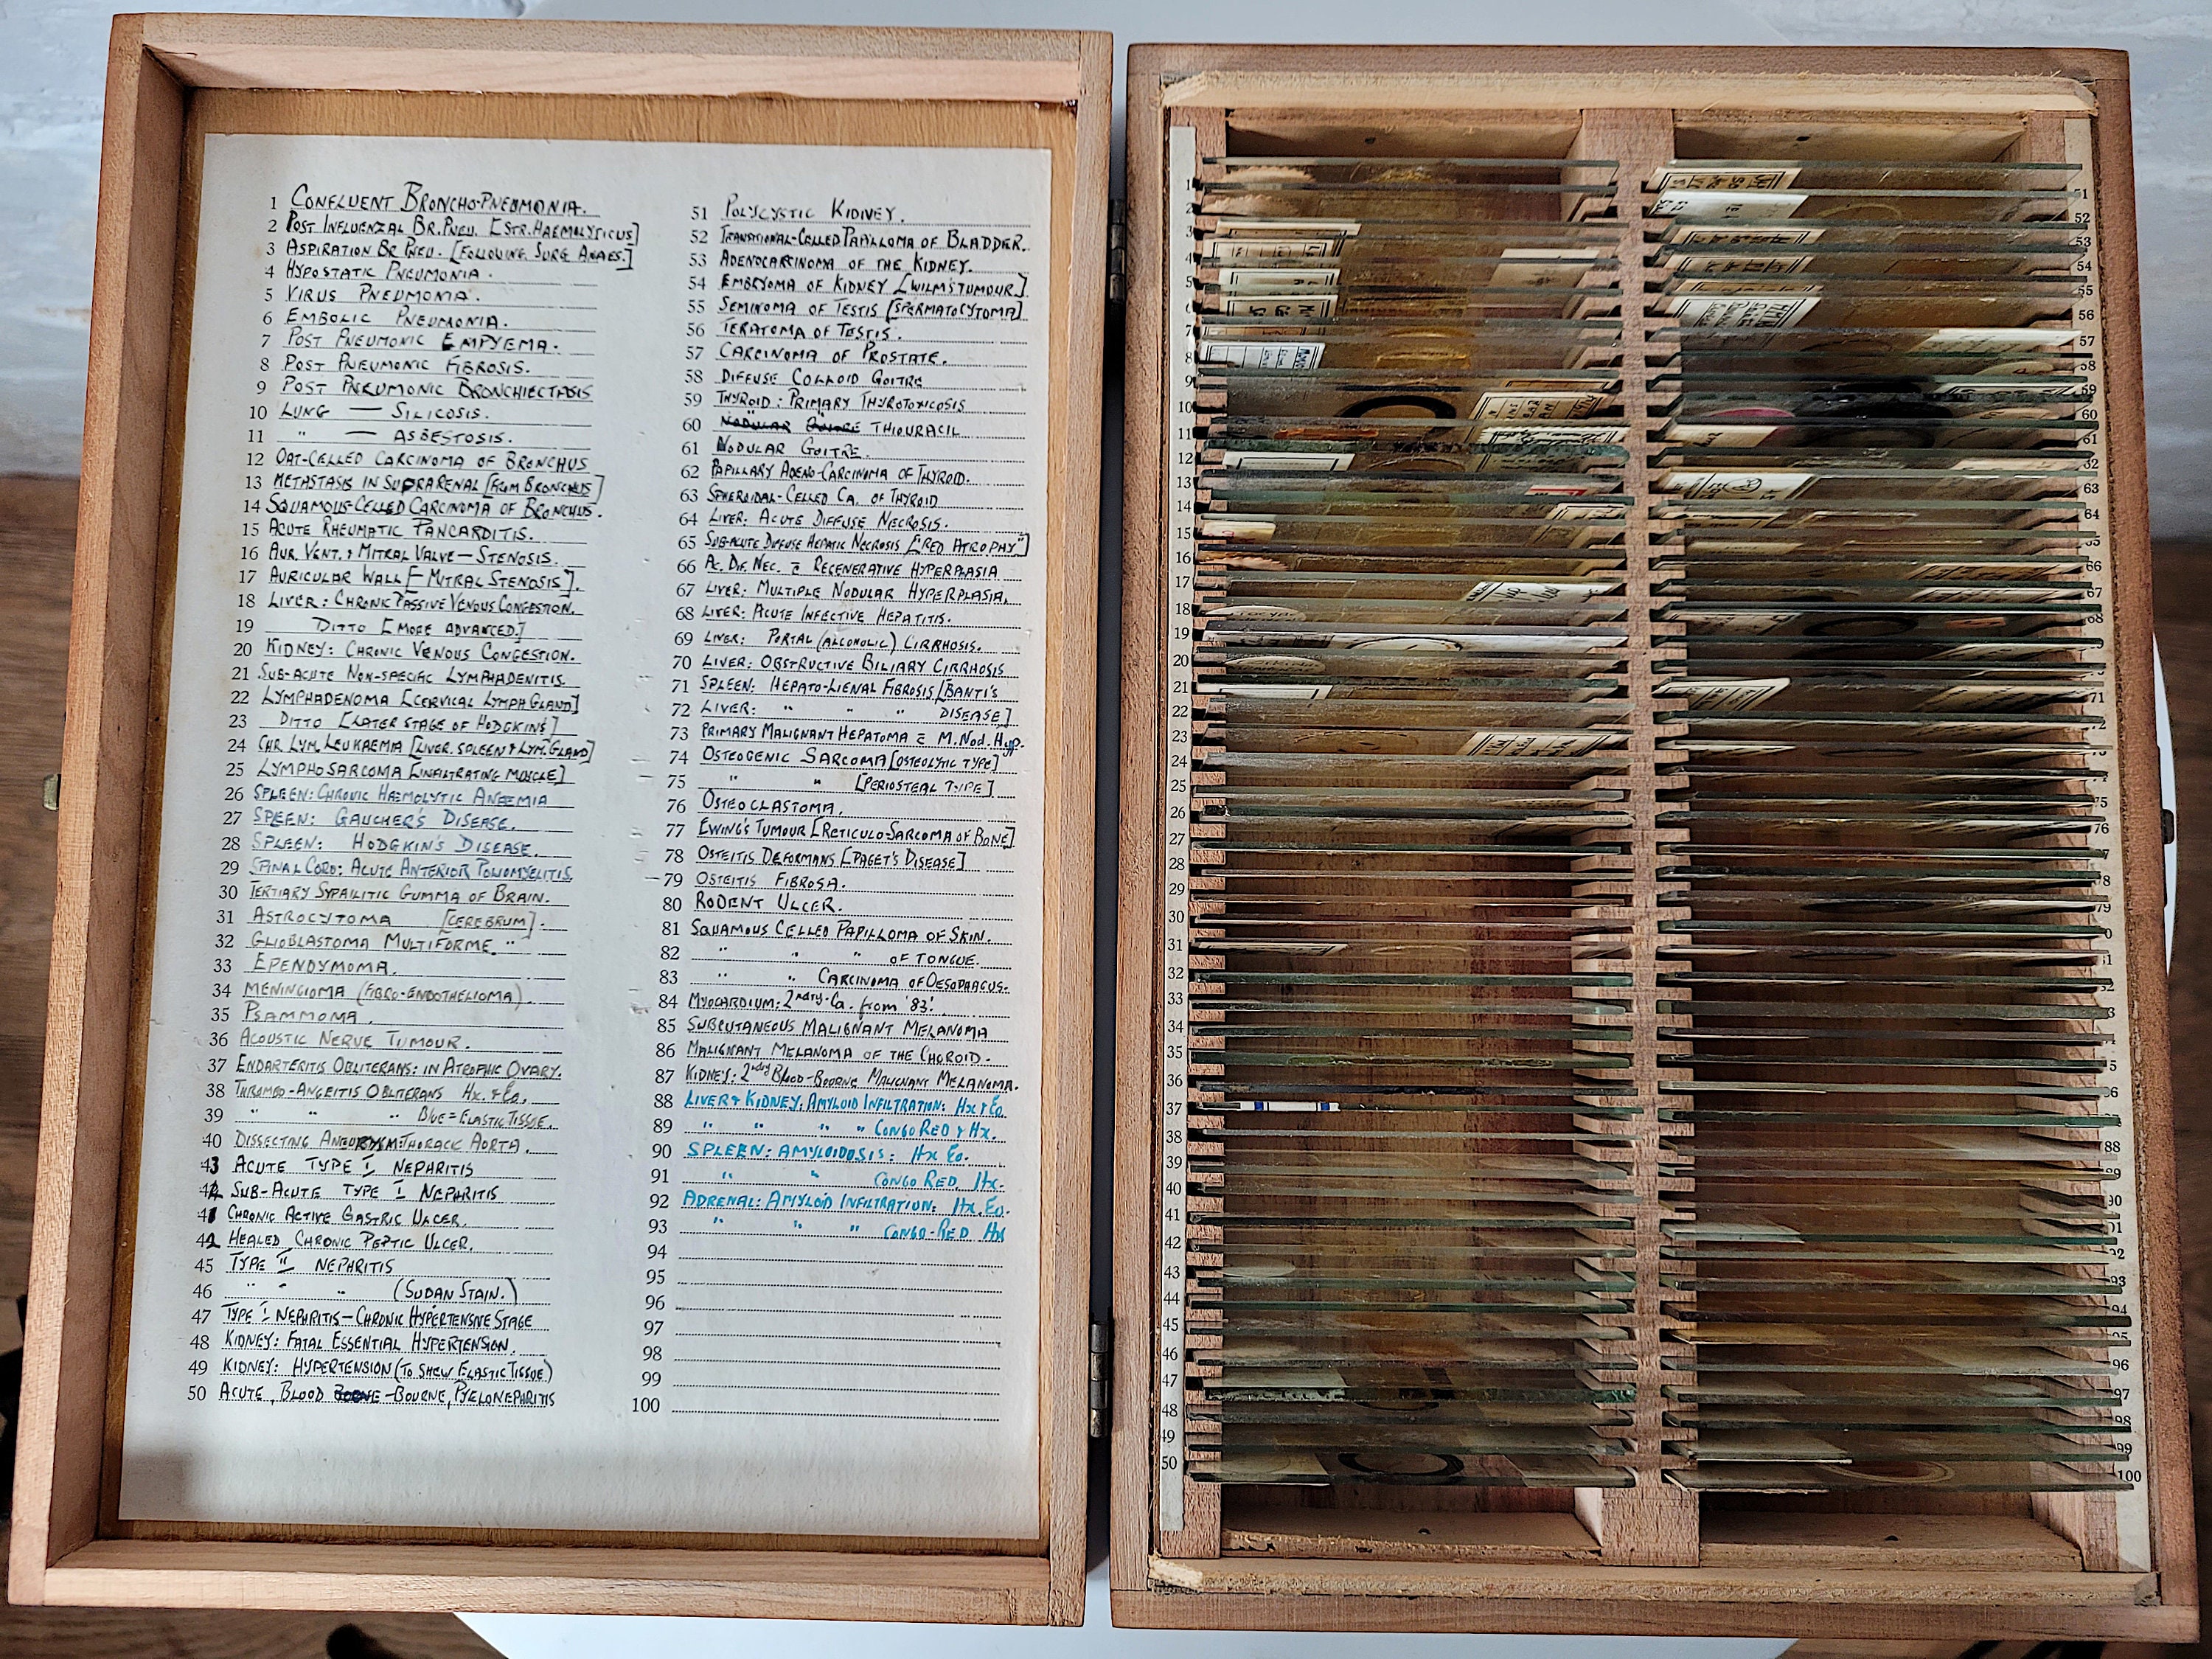 1 CONFLUENT BRONCHO-PNEUMONIA.
2 POST INFLUENZAL BR.PNEU. [STR.HAEMOLYTICUS]
3 ASPIRATION BR PNEU. [FOLLOWING SURG ANAES.]
4 HYPOSTATIC PNEUMONIA.
5 VIRUS PNEUMONIA.
6 EMBOLIC PNEUMONIA.
7 POST PNEUMONIC EMPYEMA.
8 POST PNEUMONIC FIBROSIS.
9 POST PNEUMONIC BRONCHIECTASIS
10 LUNG — SILICOSIS.
11 " — ASBESTOSIS.
12 OAT-CELLED CARCINOMA OF BRONCHUS
13 METASTASIS IN SUPRARENAL [FROM BRONCHUS]
14 SQUAMOUS-CELLED CARCINOMA OF BRONCHUS.
15 ACUTE RHEUMATIC PANCARDITIS.
16 AUR. VENT. & MITRAL VALVE — STENOSIS.
17 AURICULAR WALL [-MITRAL STENOSIS].
18 LIVER: CHRONIC PASSIVE VENOUS CONGESTION.
19 DITTO [MORE ADVANCED.]
20 KIDNEY: CHRONIC VENOUS CONGESTION.
21 SUB-ACUTE NON-SPECIFIC LYMPHADENITIS
22 LYMPHADENOMA [CERVICAL LYMPH GLAND]
23 DITTO [LATER STAGE OF HODGKINS]
24 CHR LYM. LEUKAEMIA [LIVER, SPLEEN & LYM. GLAND]
25 LYMPHOSARCOMA [INFILTRATING MUSCLE]
26 SPLEEN: CHRONIC HAEMOLYTIC ANAEMIA
27 SPLEEN: GAUCHER'S DISEASE.
28 SPLEEN: HODGKIN'S DISEASE.
29 SPINAL CORD: ACUTE ANTERIOR POLIOMYELITIS.
30 TERTIARY SYPHILITIC GUMMA OF BRAIN.
31 ASTROCYTOMA [CEREBRUM].
32 GLIOBLASTOMA MULTIFORME. "
33 EPENDYMOMA.
34 MENINGIOMA (FIBRO-ENDOTHELIOMA).
35 PSAMMOMA.
36 ACOUSTIC NERVE TUMOUR.
37 ENDARTERITIS OBLITERANS: IN ATROPHIC OVARY.
38 THROMBO-ANGEITIS OBLITERANS HX. & EO.
39 " " " BLUE = ELASTIC TISSUE.
40 DISSECTING ANEURYSM: THORACIC AORTA.
43 ACUTE TYPE I NEPHRITIS
44 SUB-ACUTE TYPE I NEPHRITIS
41 CHRONIC ACTIVE GASTRIC ULCER.
42 HEALED CHRONIC PEPTIC ULCER.
45 TYPE II NEPHRITIS
46 " " " (SUDAN STAIN.)
47 TYPE I NEPHRITIS — CHRONIC HYPERTENSIVE STAGE
48 KIDNEY: FATAL ESSENTIAL HYPERTENSION.
49 KIDNEY: HYPERTENSION (TO SHEW ELASTIC TISSUE)
50 ACUTE, BLOOD -BOURNE, PYELONEPHRITIS
51 POLYCYSTIC KIDNEY.
52 TRANSITIONAL-CELLED PAPILLOMA OF BLADDER.
53 ADENOCARCINOMA OF THE KIDNEY.
54 EMBRYOMA OF KIDNEY [WILM'S TUMOUR].
55 SEMINOMA OF TESTIS [SPERMATOCYTOMA]
56 TERATOMA OF TESTIS.
57 CARCINOMA OF PROSTATE.
58 DIFFUSE COLLOID GOITRE
59 THYROID: PRIMARY THYROTOXICOSIS
60 NODULAR GOITRE THIOURACIL
61 NODULAR GOITRE.
62 PAPILLARY ADENO-CARCINOMA OF THYROID.
63 SPHEROIDAL-CELLED CA. OF THYROID
64 LIVER: ACUTE DIFFUSE NECROSIS.
65 SUB-ACUTE DIFFUSE HEPATIC NECROSIS ["RED ATROPHY"]
66 AC. DIF. NEC. c̄ REGENERATIVE HYPERPLASIA
67 LIVER: MULTIPLE NODULAR HYPERPLASIA.
68 LIVER: ACUTE INFECTIVE HEPATITIS.
69 LIVER: PORTAL (ALCOHOLIC) CIRRHOSIS.
70 LIVER: OBSTRUCTIVE BILIARY CIRRHOSIS
71 SPLEEN: HEPATO-LIENAL FIBROSIS [BANTI'S
72 LIVER: " " " DISEASE]
73 PRIMARY MALIGNANT HEPATOMA c̄ M. Nod. Hyp.
74 OSTEOGENIC SARCOMA [OSTEOLYTIC TYPE]
75 " " [PERIOSTEAL TYPE]
76 OSTEOCLASTOMA.
77 EWING'S TUMOUR [RETICULO-SARCOMA OF BONE]
78 OSTEITIS DEFORMANS [PAGET'S DISEASE]
79 OSTEITIS FIBROSA.
80 RODENT ULCER.
81 SQUAMOUS CELLED PAPILLOMA OF SKIN.
82 " " " OF TONGUE.
83 " " CARCINOMA OF OESOPHAGUS.
84 MYOCARDIUM: 2ndry Ca. from '83'.
85 SUBCUTANEOUS MALIGNANT MELANOMA
86 MALIGNANT MELANOMA OF THE CHOROID.
87 KIDNEY: 2ndry BLOOD-BOURNE MALIGNANT MELANOMA.
88 LIVER & KIDNEY: AMYLOID INFILTRATION: HX & EO.
89 " " " " CONGO RED & HX.
90 SPLEEN: AMYLOIDOSIS: HX EO.
91 " " CONGO RED. HX.
92 ADRENAL: AMYLOID INFILTRATION: HX. EO.
93 " " " CONGO-RED HX
94
95
96
97
98
99
100
1
2
3
4
5
6
7
8
9
10
11
12
13
14
15
16
17
18
19
20
21
22
23
24
25
26
27
28
29
30
31
32
33
34
35
36
37
38
39
40
41
42
43
44
45
46
47
48
49
50
51
52
53
54
55
56
57
58
59
60
61
63
64
66
67
68
71
76
88
90
96
97
98
99
100